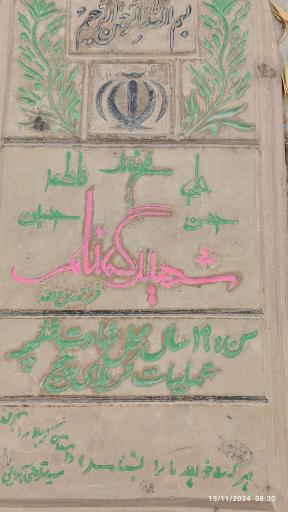 بسم الله الرحمن الرحیم
محمد
علی فاطمه
حسن حسین
شهید گمنام
فرزند روح الله
سن: ۱۹ سال محل شهادت شلمچه
عملیات کربلای پنج
هر که میخواهد ما را بشناسد داستان کربلا را
سید مرتضی آوینی
15/11/2024 08:30